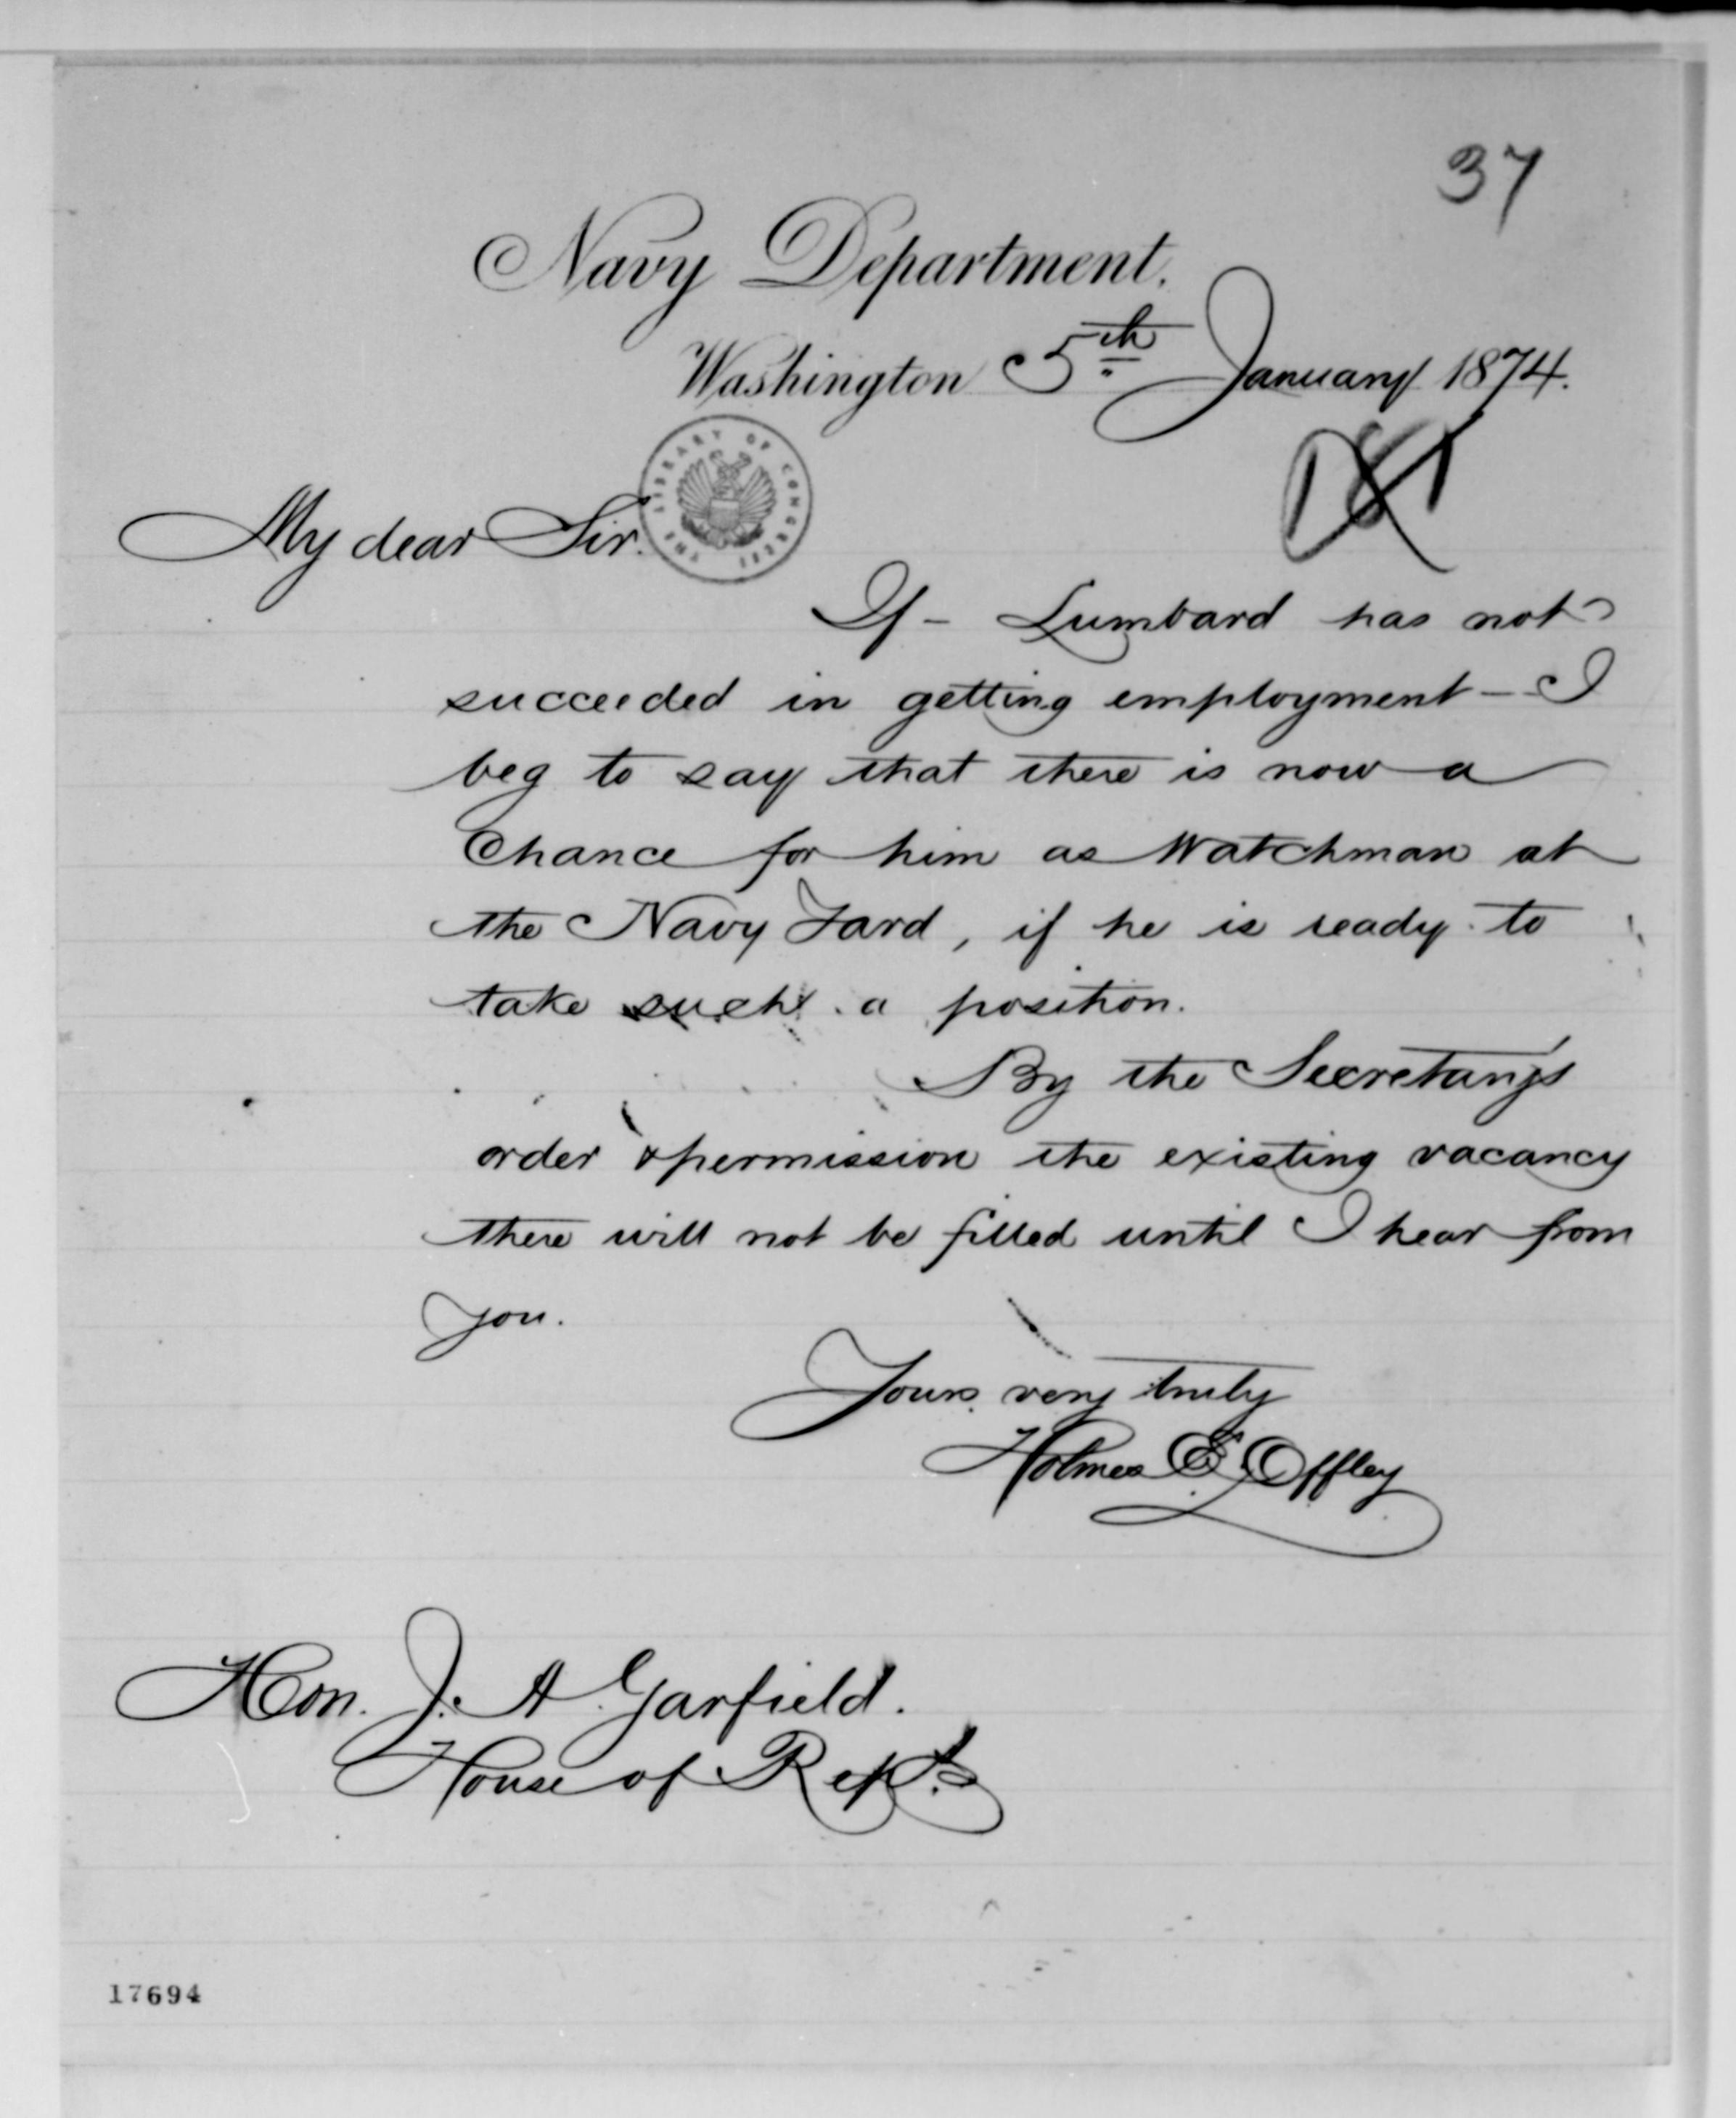 37
Navy Department.
Washington 5th January 1874.
THE LIBRARY OF CONGRESS
My dear Sir.
If - Lumbard has not
succeeded in getting employment - I
beg to say that there is now a
Chance for him as Watchman at
the Navy Yard, if he is ready to
take such a position.
By the Secretary's
order & permission the existing vacancy
there will not be filled until I hear from
you.
Yours very truly
Holmes E. Offley
Hon. J. A. Garfield.
House of Rep.s
17694